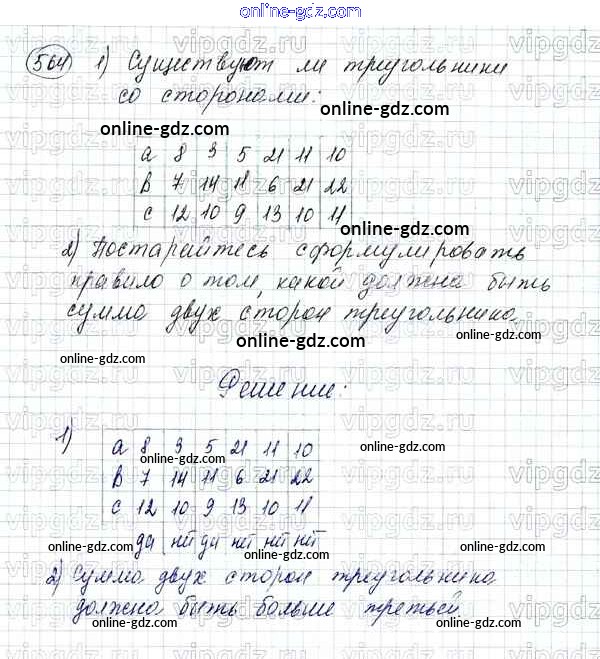 online-gdz.com
564 1) Существуют ли треугольники
со сторонами:
online-gdz.com
a 8 3 5 21 11 10
B 7 14 11 6 21 22
c 12 10 9 13 10 11
online-gdz.com
2) Постарайтесь сформулировать
правило о том, какой должна быть
сумма двух сторон треугольника.
online-gdz.com
online-gdz.com
online-gdz.com
Решение:
1)
online-gdz.com
a 8 3 5 21 11 10
B 7 14 11 6 21 22
online-gdz.com
c 12 10 9 13 10 11
да нет да нет нет нет
online-gdz.com
online-gdz.com
2) Сумма двух сторон треугольника
должна быть больше третьей
online-gdz.com
online-gdz.com